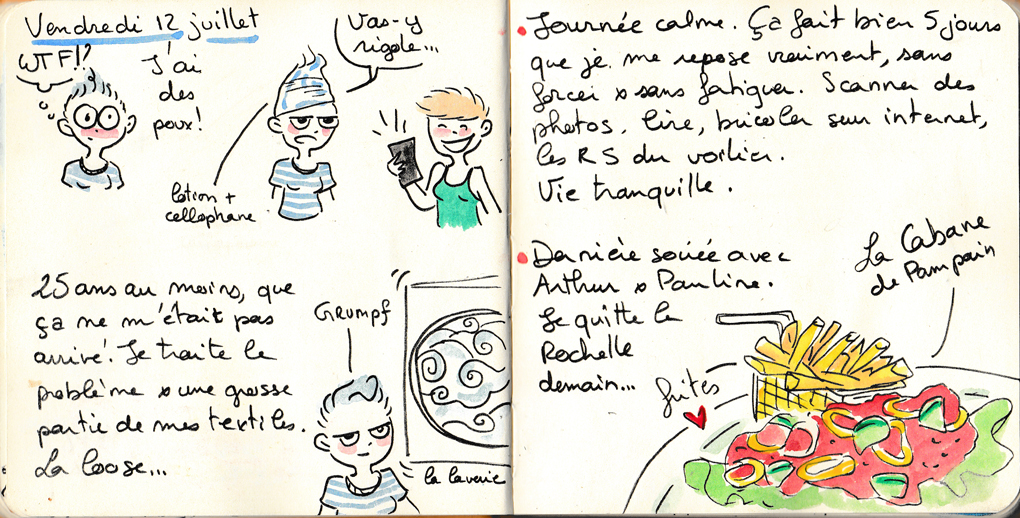 Vendredi 12 juillet
WTF!?
J'ai
des
poux!
Vas-y
rigole...
lotion +
cellophane
25 ans au moins, que
ça ne m'était pas
arrivé! Je traite le
problème x une grosse
partie de mes textiles.
La loose...
Grumpf
la laverie
Journée calme. Ça fait bien 5 jours
que je me repose vraiment, sans
forcer x sans fatiguer. Scanner des
photos, lire, bricoler sur internet,
les RS du voilier.
Vie tranquille.
Dernière soirée avec
Arthur x Pauline.
Je quitte la
Rochelle
demain...
La Cabane
de Pampain
frites